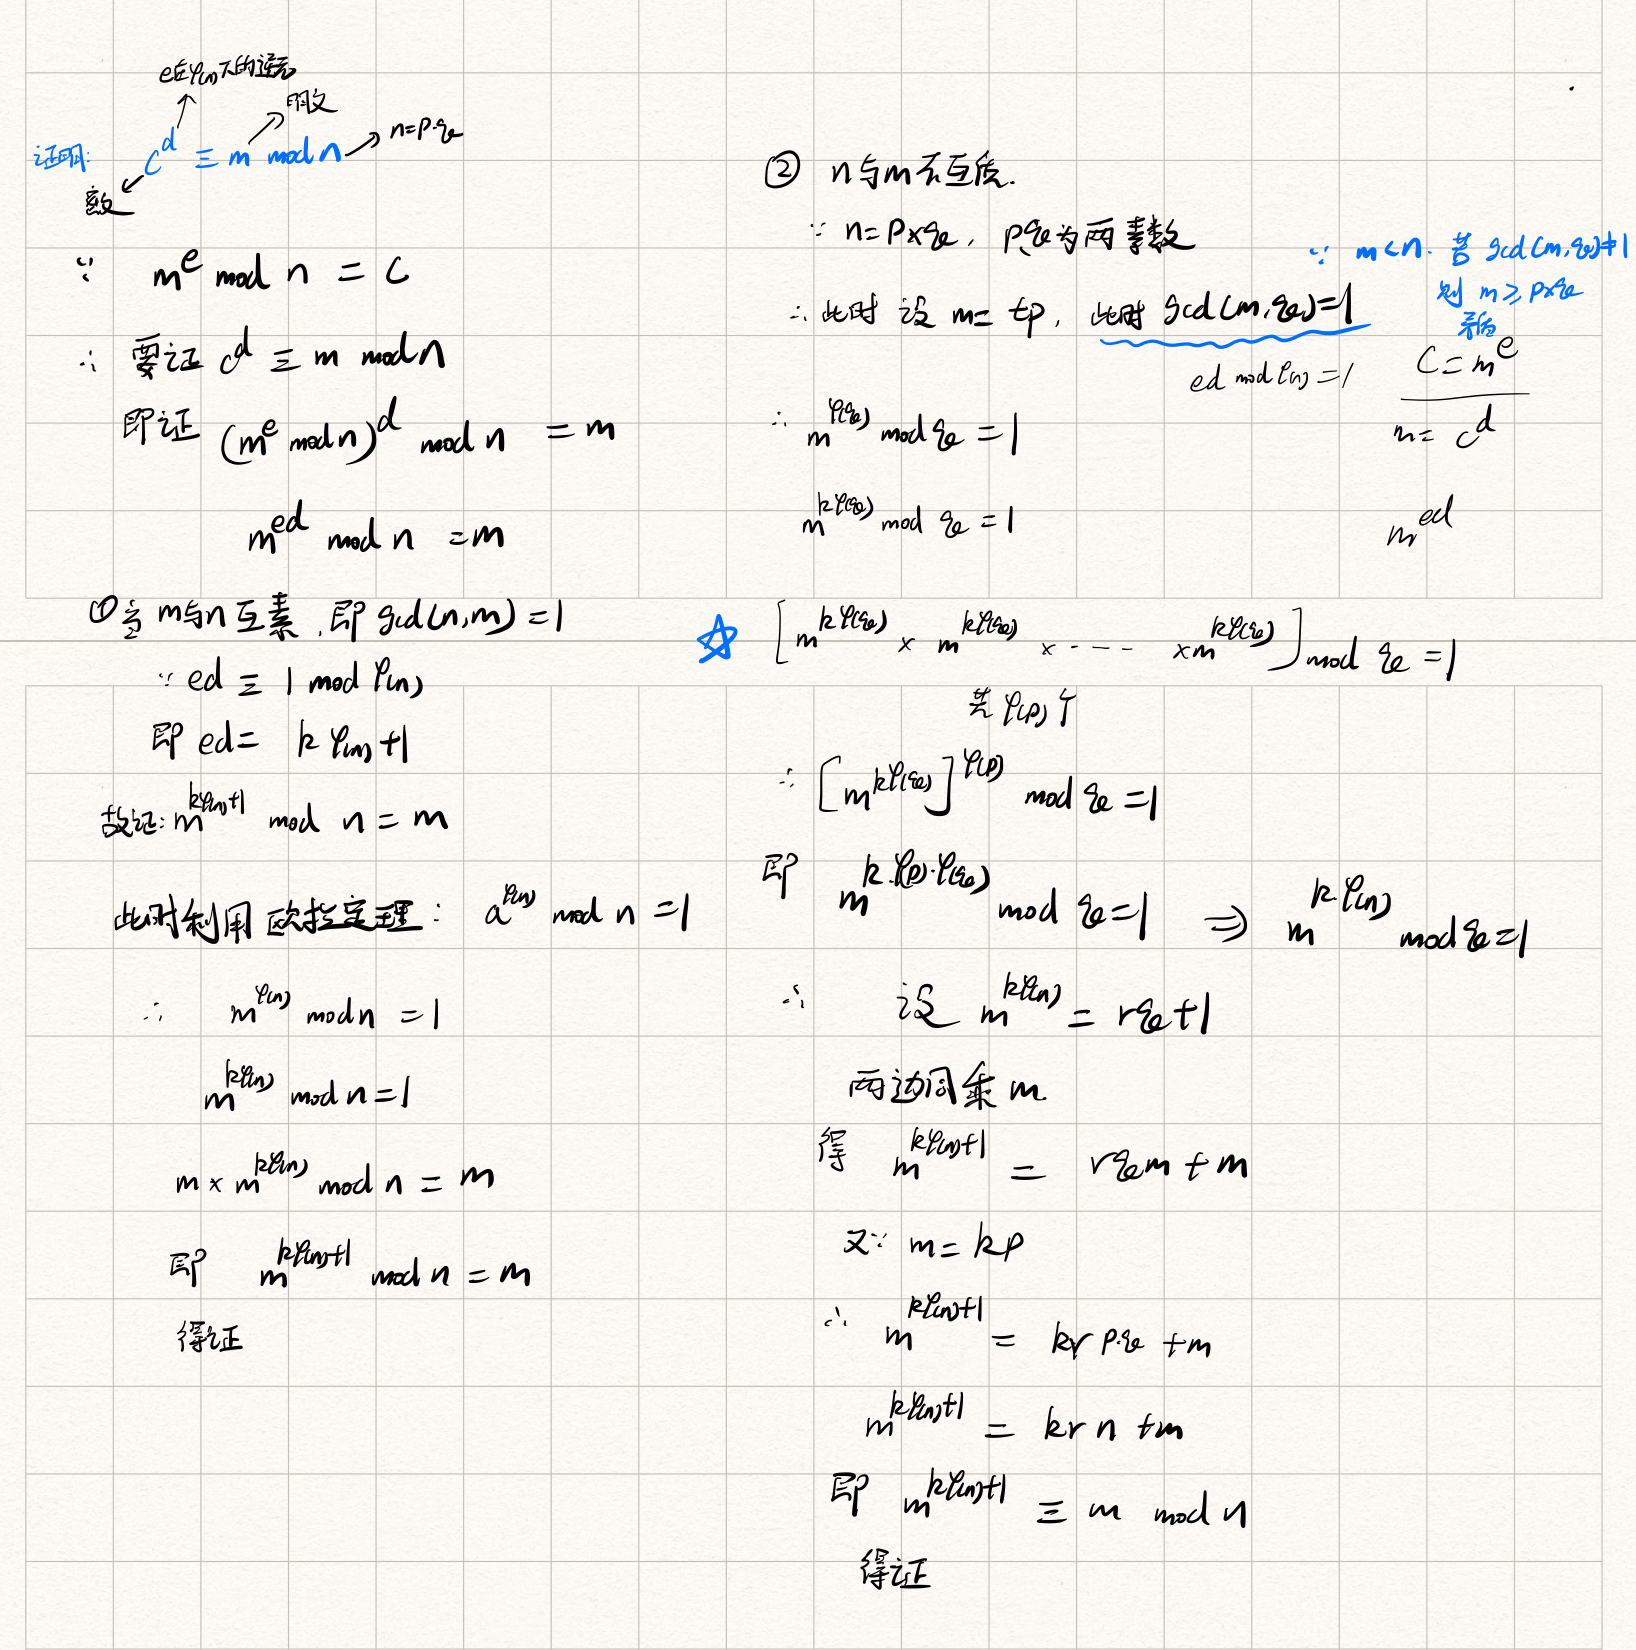 e在φ(n)下的逆元
明文
n=p·q
证明: c^d ≡ m mod n
密文
∵ m^e mod n = c
∴ 要证 c^d ≡ m mod n
即证 (m^e mod n)^d mod n = m
m^{ed} mod n = m
① 当 m与n 互素, 即 gcd(n,m)=1
∵ ed ≡ 1 mod φ(n)
即 ed= kφ(n)+1
故证: m^{kφ(n)+1} mod n = m
此时利用 欧拉定理: a^{φ(n)} mod n =1
∴ m^{φ(n)} mod n =1
m^{kφ(n)} mod n =1
m × m^{kφ(n)} mod n = m
即 m^{kφ(n)+1} mod n = m
得证
② n与m不互质.
∵ n=p×q, p,q为两素数
∴ 此时 设 m= tp, 此时 gcd(m,q)=1
∵ m<n. 若 gcd(m,q)≠1
则 m ≥ p×q
矛盾
ed mod φ(n) =1
C = m^e
m = c^d
m^{ed}
∴ m^{φ(q)} mod q =1
m^{kφ(q)} mod q =1
☆ [m^{kφ(q)} × m^{kφ(q)} × ---- × m^{kφ(q)}] mod q =1
共φ(p)个
∴ [m^{kφ(q)}]^{φ(p)} mod q =1
即 m^{k·φ(p)·φ(q)} mod q =1 ⇒ m^{kφ(n)} mod q =1
∴ 设 m^{kφ(n)} = rq+1
两边同乘 m.
得 m^{kφ(n)+1} = rqm + m
又∵ m = kp
∴ m^{kφ(n)+1} = kr p·q + m
m^{kφ(n)+1} = kr n + m
即 m^{kφ(n)+1} ≡ m mod n
得证